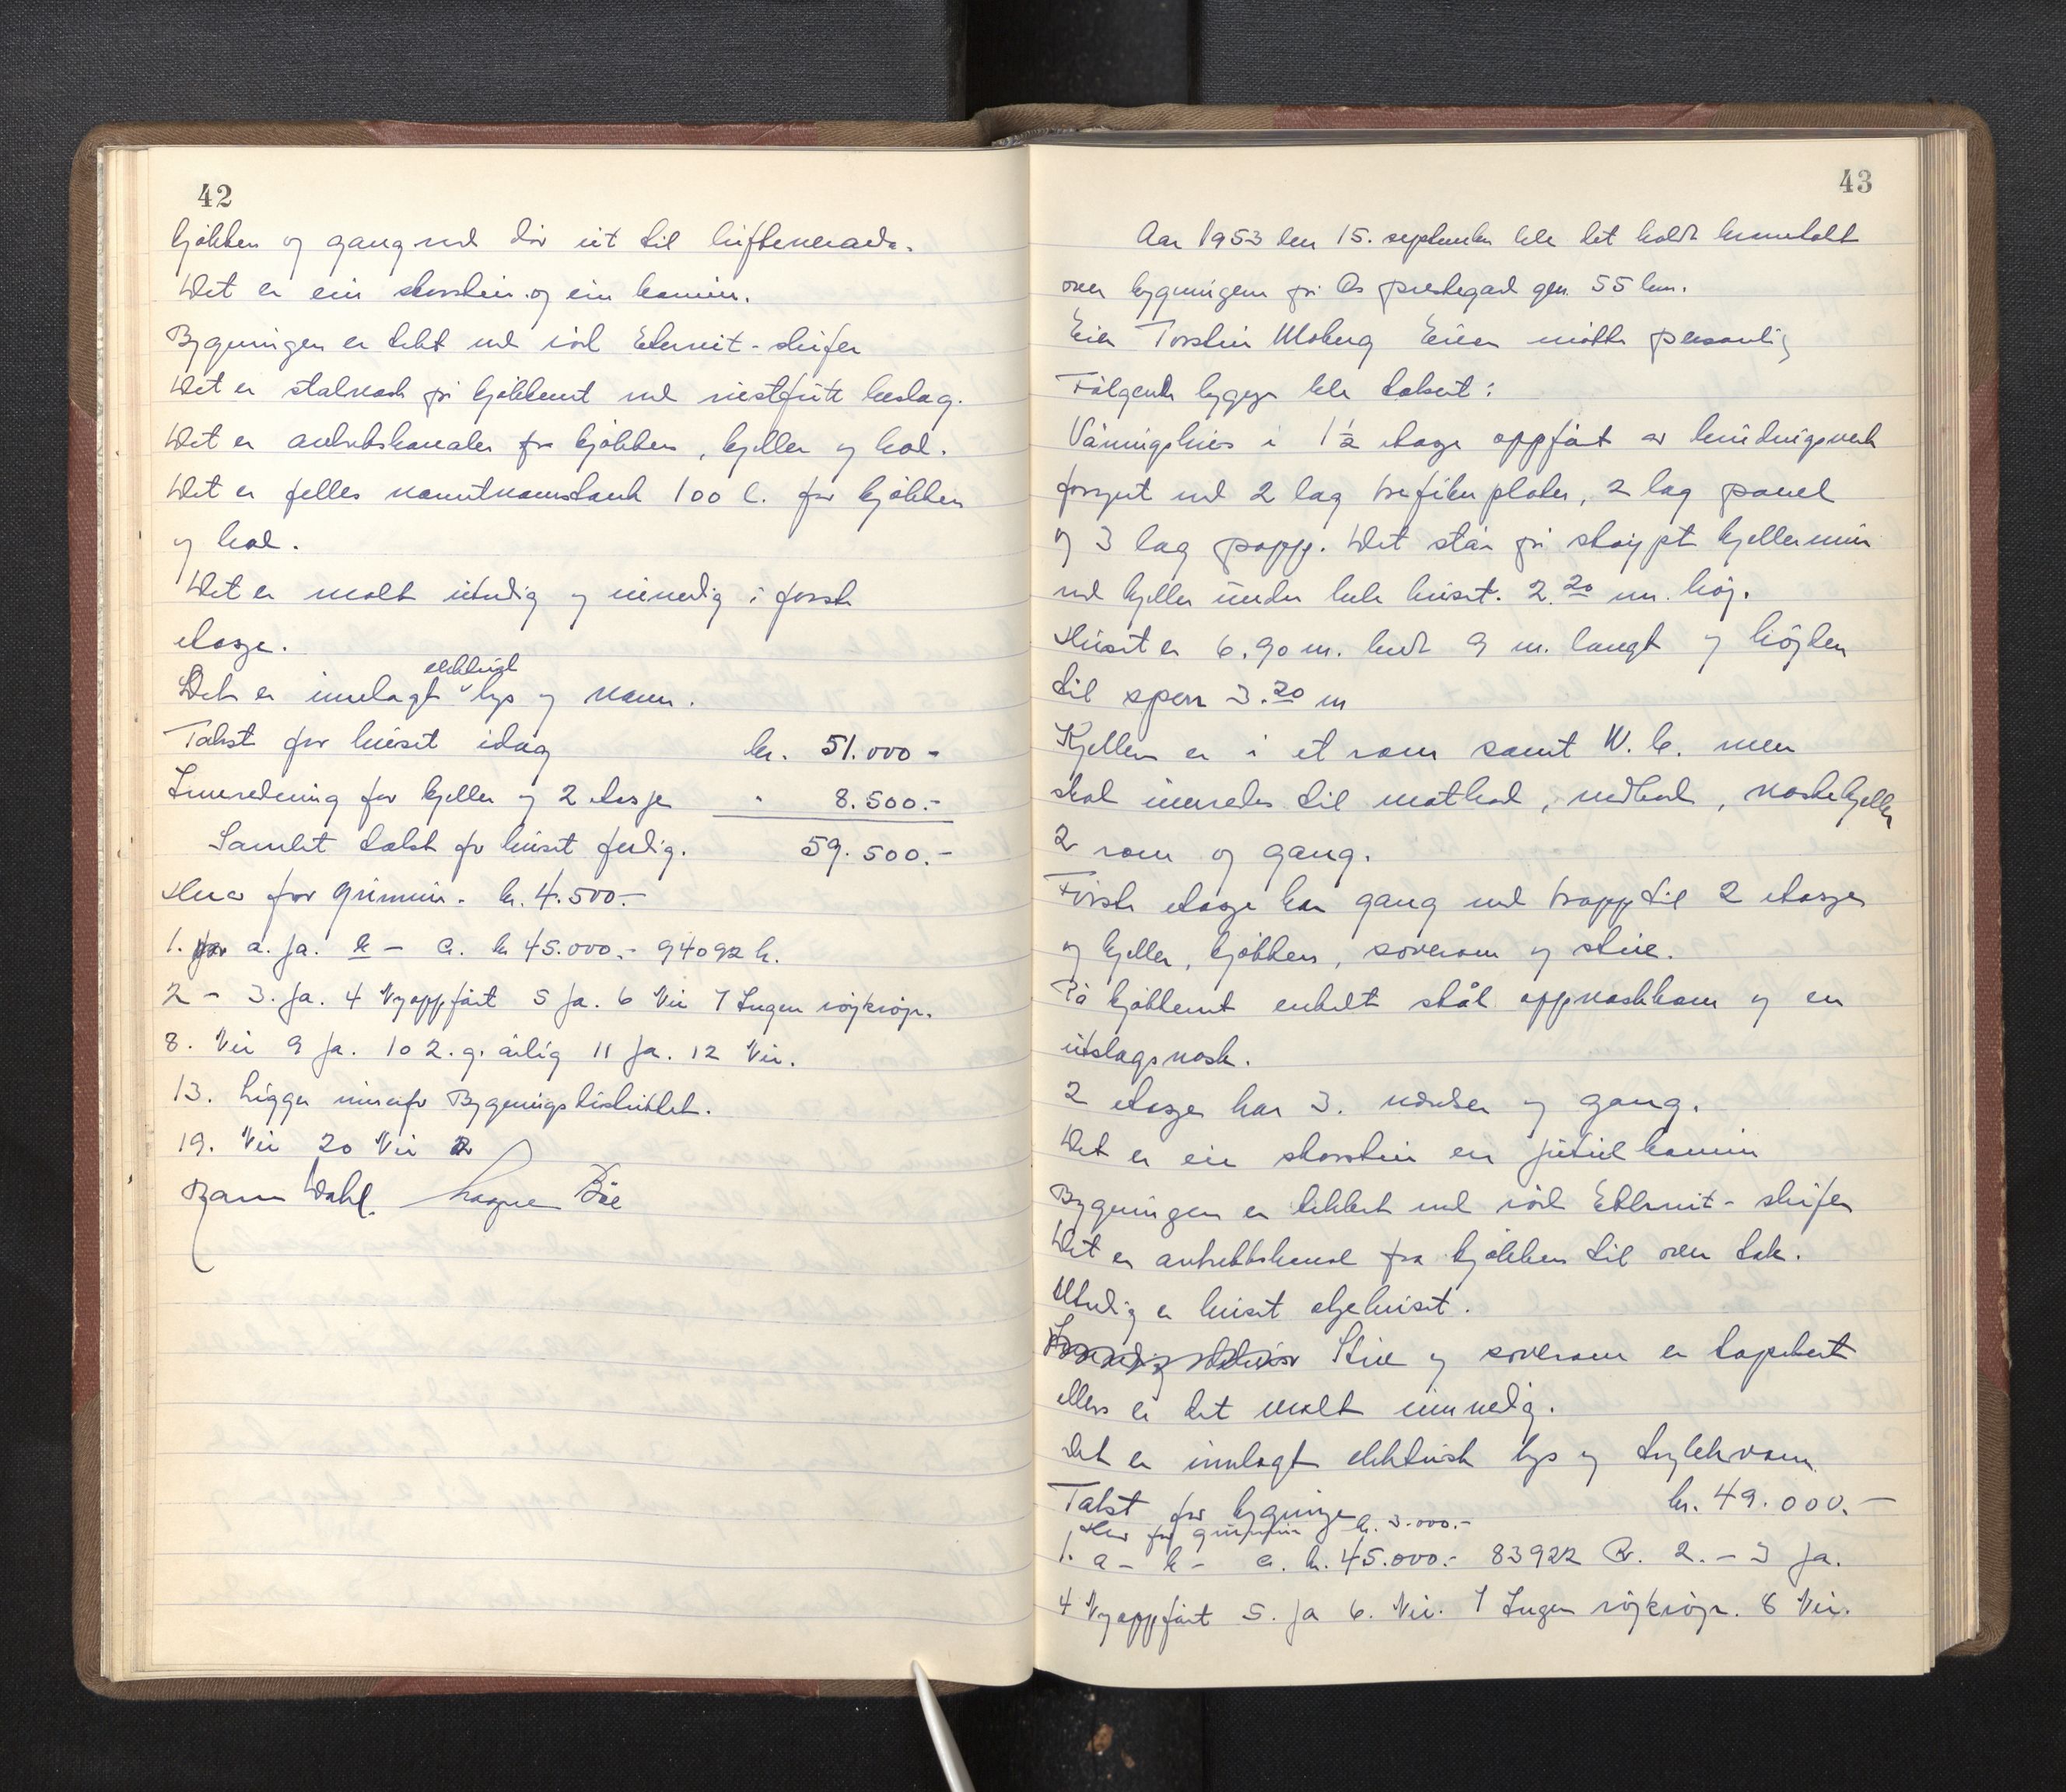 42
kjökken og gang med dör ut til luftveranda.
Det er ein skorstein og ein kamin.
Bygningen er tekt med röd Eternit-skifer
Det er stalvask på kjökkenet med rustfritt beslag.
Det er avtrekskanaler fra kjökken, kjeller og bad.
Det er felles varmtvannstank 100 l. for kjökken
og bad.
Det er malt utvendig og innvendig i förste
etasje.
Det er innlagt elektrisk lys og vann.
Takst for huset idag kr. 51.000-
Innredning for kjeller og 2 etasje " 8.500.-
Samlet takst for huset ferdig. 59.500.-
Herav for grunnmur. kr. 4.500.-
1. a. Ja. b - c. kr 45.000.- 94092 h.
2 - 3. Ja. 4 Nyoppfört 5 Ja. 6 Nei 7 Ingen röykrör.
8. Nei 9 Ja. 10 2.g. årlig 11 Ja. 12 Nei.
13. Ligger innenfor Bygningsdistriktet.
19. Nei 20 Nei
Dahl. Böe
43
Aar 1953 den 15. september ble det holdt branntakst
over bygningen på Os prestegard gnr. 55 bnr.
Eier Torstein Moberg Eieren mötte personlig
Fölgende bygg ble taksert:
Våningshus i 1½ etasje oppfört av bindingsverk
forsynt med 2 lag trefiberplater, 2 lag panel
og 3 lag papp. Det står på stöypt kjellermur
med kjeller under hele huset. 2.20 m. höy.
Huset er 6.90 m. bredt 9 m. langt og höyden
til sperr 3.20 m
Kjelleren er i et rom samt W.C. men
skal innredes til matbod, vedbod, vaskekjeller
2 rom og gang.
Förste etasje har gang med trapp til 2 etasje
og kjeller, kjökken, soverom og stue.
På kjökkenet enkelt stål oppvaskkum og en
utslagsvask.
2 etasje har 3. værelser og gang.
Det er ein skorstein en Jötul kamin
Bygningen er tekket med röd Eternit-skifer
Det er avtrekkskanal fra kjökken til over tak.
Utvendig er huset oljebeiset.
Stue og soverom er tapetsert
ellers er det malt innvendig.
Det er innlagt elektrisk lys og trykkvann
Takst for bygningen kr. 49.000.-
Herav for grunnmur kr. 3.000.-
1. a - b - c. kr. 45.000.- 83922 Br. 2. - 3 Ja.
4 Nyoppfört 5. Ja 6. Nei. 7 Ingen röykrör. 8 Nei.